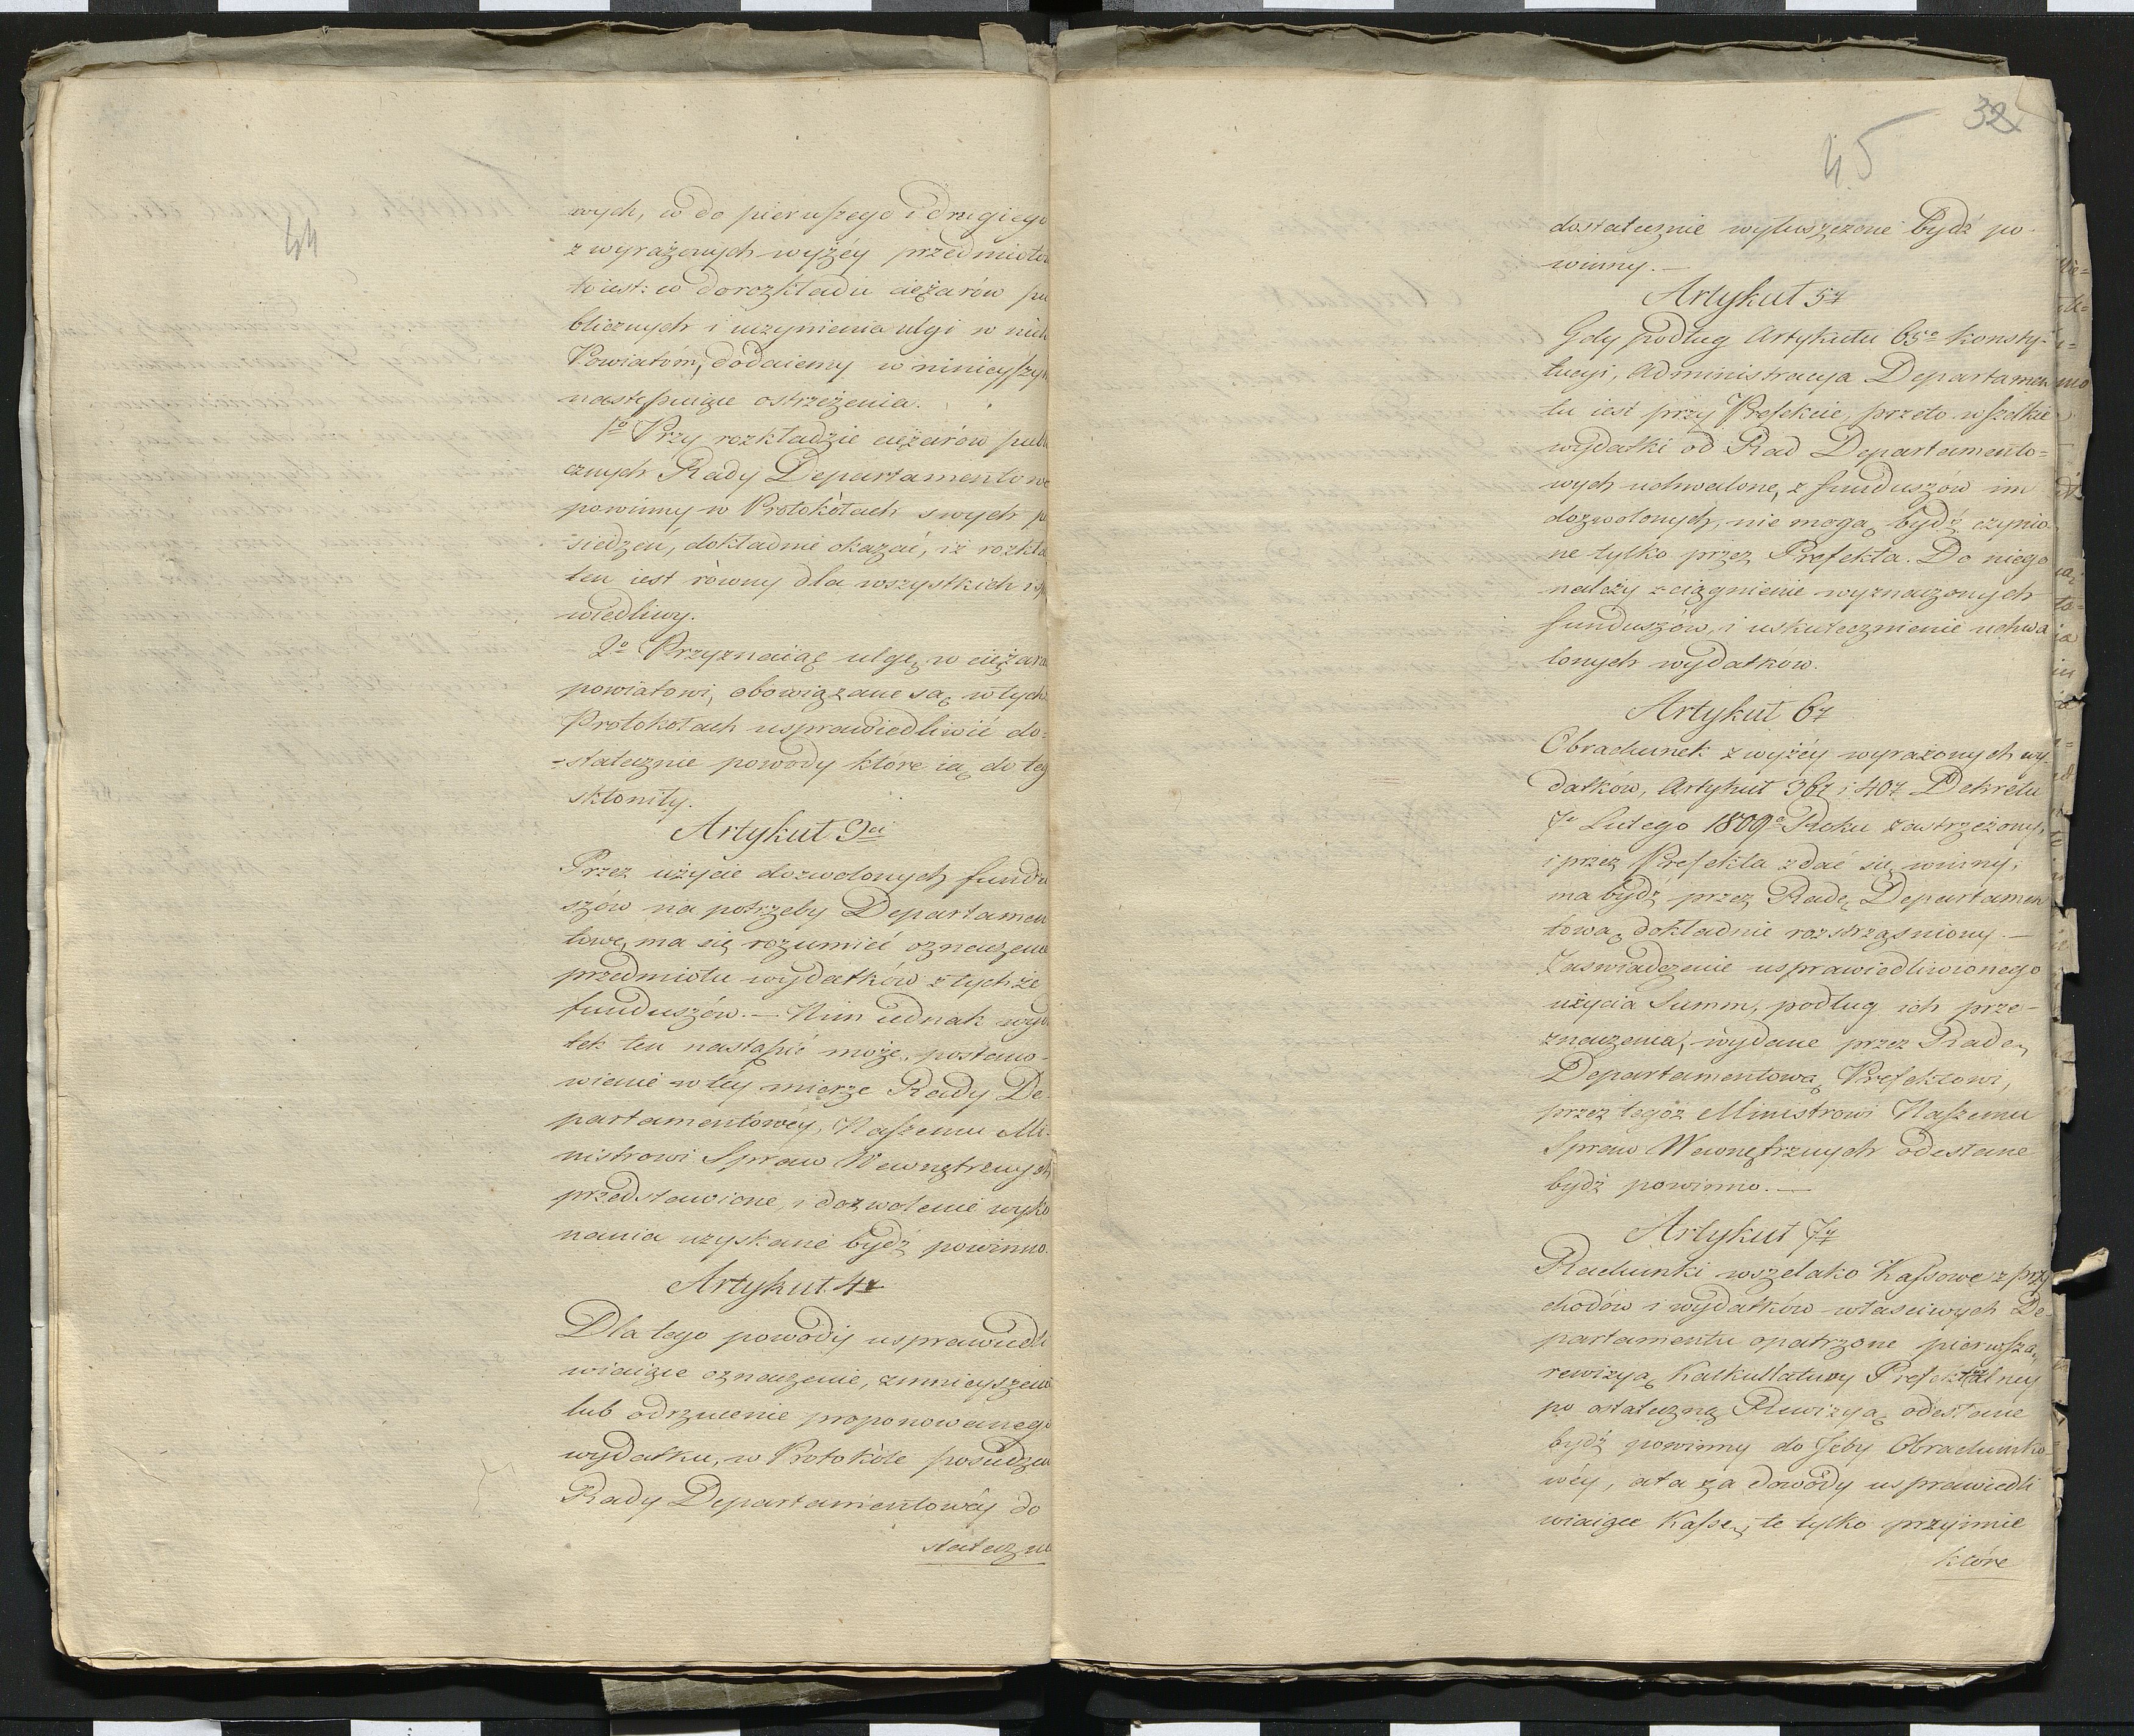 44
wych, co do pierwszego i drugiego
z wyrażonych wyżéy przedmiotó
to iest: co do rozkładu ciężarów pu
blicznych i uczynienia ulgi w nich
Powiatom, dodaiemy w ninieyszym
następuiące ostrzeżenia.
1o Przy rozkładzie ciężarów publi
cznych Rady Departamentowe
powinny w Protokółach swych po
siedzeń, dokładnie okazać, iż rozkła
ten iest równy dla wszystkich i sp
wiedliwy.
2o Przyznaiąc ulgę w ciężara
powiatowi, obowiązane są, w tych
Protokołach usprawiedliwić do=
=statecznie powody które ią do teg
skłoniły.
Artykuł 3ci
Przez użycie dozwolonych fundu
szów na potrzeby Departamen
towe, ma się rozumieć oznaczenie
przedmiotu wydatków z tychże
funduszów. — Nim iednak wyd
tek ten nastąpić może, postano-
wienie w téy mierze Rady De-
partamentowéy, Naszemu Mi-
nistrowi Spraw Wewnętrznych
przedstawione, i dozwolenie wyko
nania uzyskane bydź powinno.
Artykuł 4y
Dla tego powody usprawiedli
wiaiące oznaczenie, zmnieyszenie
lub odrzucenie proponowanego
wydatku, w Protokóle posiedzen
Rady Departamentowéy do
stateczn
32
45
dostatecznie wyłuszczone bydź po-
winny. —
Artykuł 5y
Gdy podług Artykułu 65o Konsty-
tucyi, Administracya Departamen
tu iest przy Prefekcie, przeto wszelkie
wydatki od Rad Departamento=
wych uchwalone, z funduszów im
dozwolonych, nie mogą bydź czynio
ne tylko przez Prefekta. Do niego
należy zciągnienie wyznaczonych
funduszów, i uskutecznienie uchwa
lonych wydatków.
Artykuł 6y
Obrachunek z wyżéy wyrażonych wy-
datków, Artykuł 36y i 40y Dekretu
7o Lutego 1809o Roku zastrzeżony,
i przez Prefekta zdać się winny,
ma bydź przez Radę Departamen
tową dokładnie rozstrząśniony. —
Zaświadczenie usprawiedliwionego
użycia Summ, podług ich prze-
znaczenia, wydane przez Radę
Departamentową Prefektowi,
przez tegoż Ministrowi Naszemu
Spraw Wewnętrznych odesłane
bydź powinno. —
Artykuł 7y
Rachunki wszelako Kassowe z przy
chodów i wydatków właściwych De-
partamentu opatrzone pierwszą
rewizyą Kalkullatury Prefekturalney
po ostateczną Rewizyą odesłane
bydź powinny do Izby Obrachunko
wéy, a ta za dowody usprawiedli
wiaiące Kassę, te tylko przyimie
które